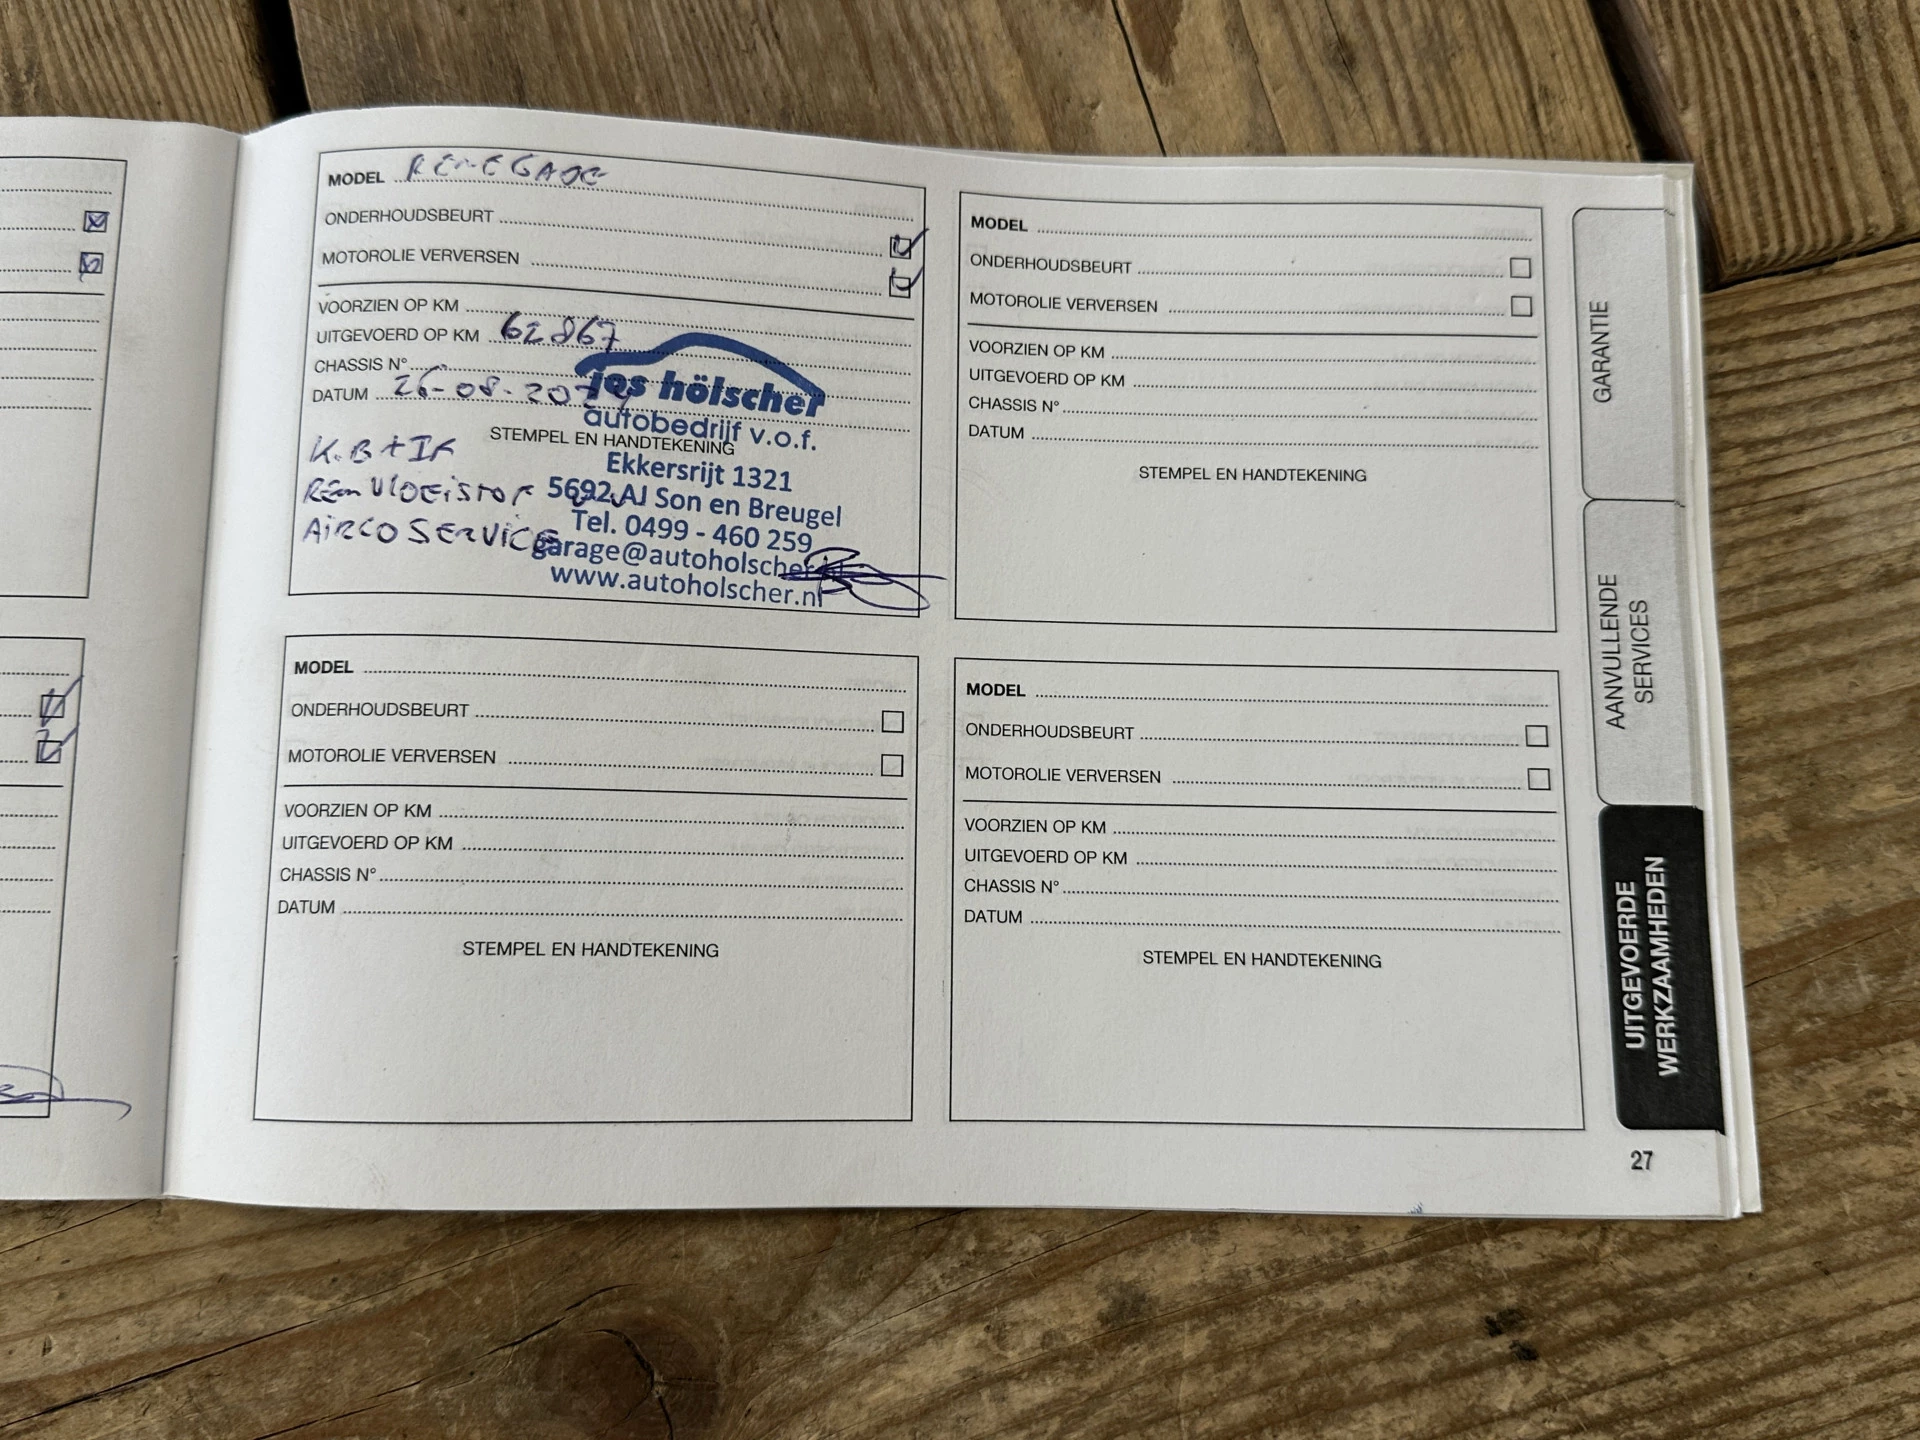 MODEL RENEGADE
ONDERHOUDSBEURT
MOTOROLIE VERVERSEN
VOORZIEN OP KM
UITGEVOERD OP KM 62867
CHASSIS N°
DATUM 26-08-2024
STEMPEL EN HANDTEKENING
K.B + IF
REMVLOEISTOF
AIRCO SERVICE
jos hölscher
autobedrijf v.o.f.
Ekkersrijt 1321
5692 AJ Son en Breugel
Tel. 0499 - 460 259
garage@autoholscher.nl
www.autoholscher.nl
MODEL
ONDERHOUDSBEURT
MOTOROLIE VERVERSEN
VOORZIEN OP KM
UITGEVOERD OP KM
CHASSIS N°
DATUM
STEMPEL EN HANDTEKENING
MODEL
ONDERHOUDSBEURT
MOTOROLIE VERVERSEN
VOORZIEN OP KM
UITGEVOERD OP KM
CHASSIS N°
DATUM
STEMPEL EN HANDTEKENING
MODEL
ONDERHOUDSBEURT
MOTOROLIE VERVERSEN
VOORZIEN OP KM
UITGEVOERD OP KM
CHASSIS N°
DATUM
STEMPEL EN HANDTEKENING
GARANTIE
AANVULLENDE
SERVICES
UITGEVOERDE
WERKZAAMHEDEN
27